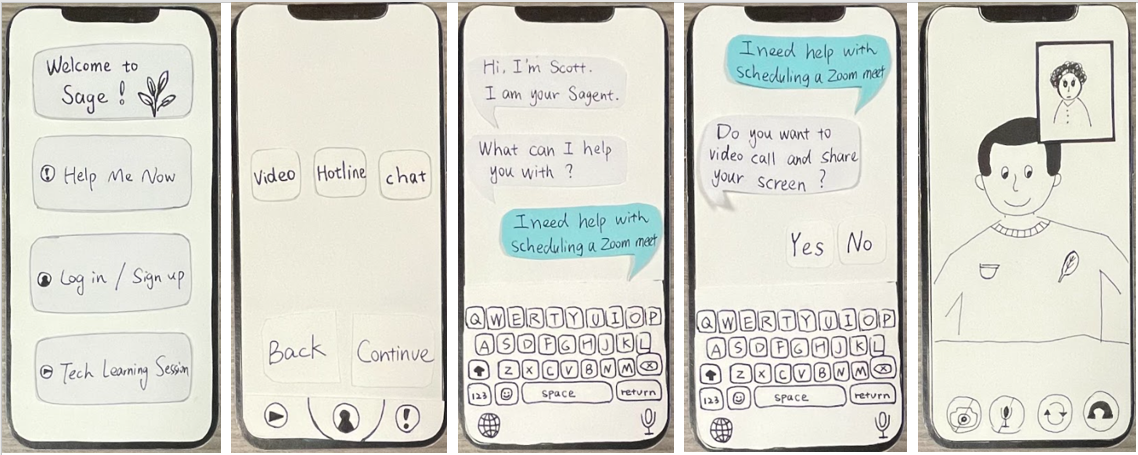 Welcome to
Sage !
Help Me Now
Log in / Sign up
Tech Learning Session
Video
Hotline
chat
Back
Continue
Hi, I'm Scott.
I am your Sagent.
What can I help
you with ?
I need help with
scheduling a Zoom meet
Q W E R T Y U I O P
A S D F G H J K L
Z X C V B N M
123
space
return
I need help with
scheduling a Zoom meet
Do you want to
video call and share
your screen ?
Yes
No
Q W E R T Y U I O P
A S D F G H J K L
Z X C V B N M
123
space
return